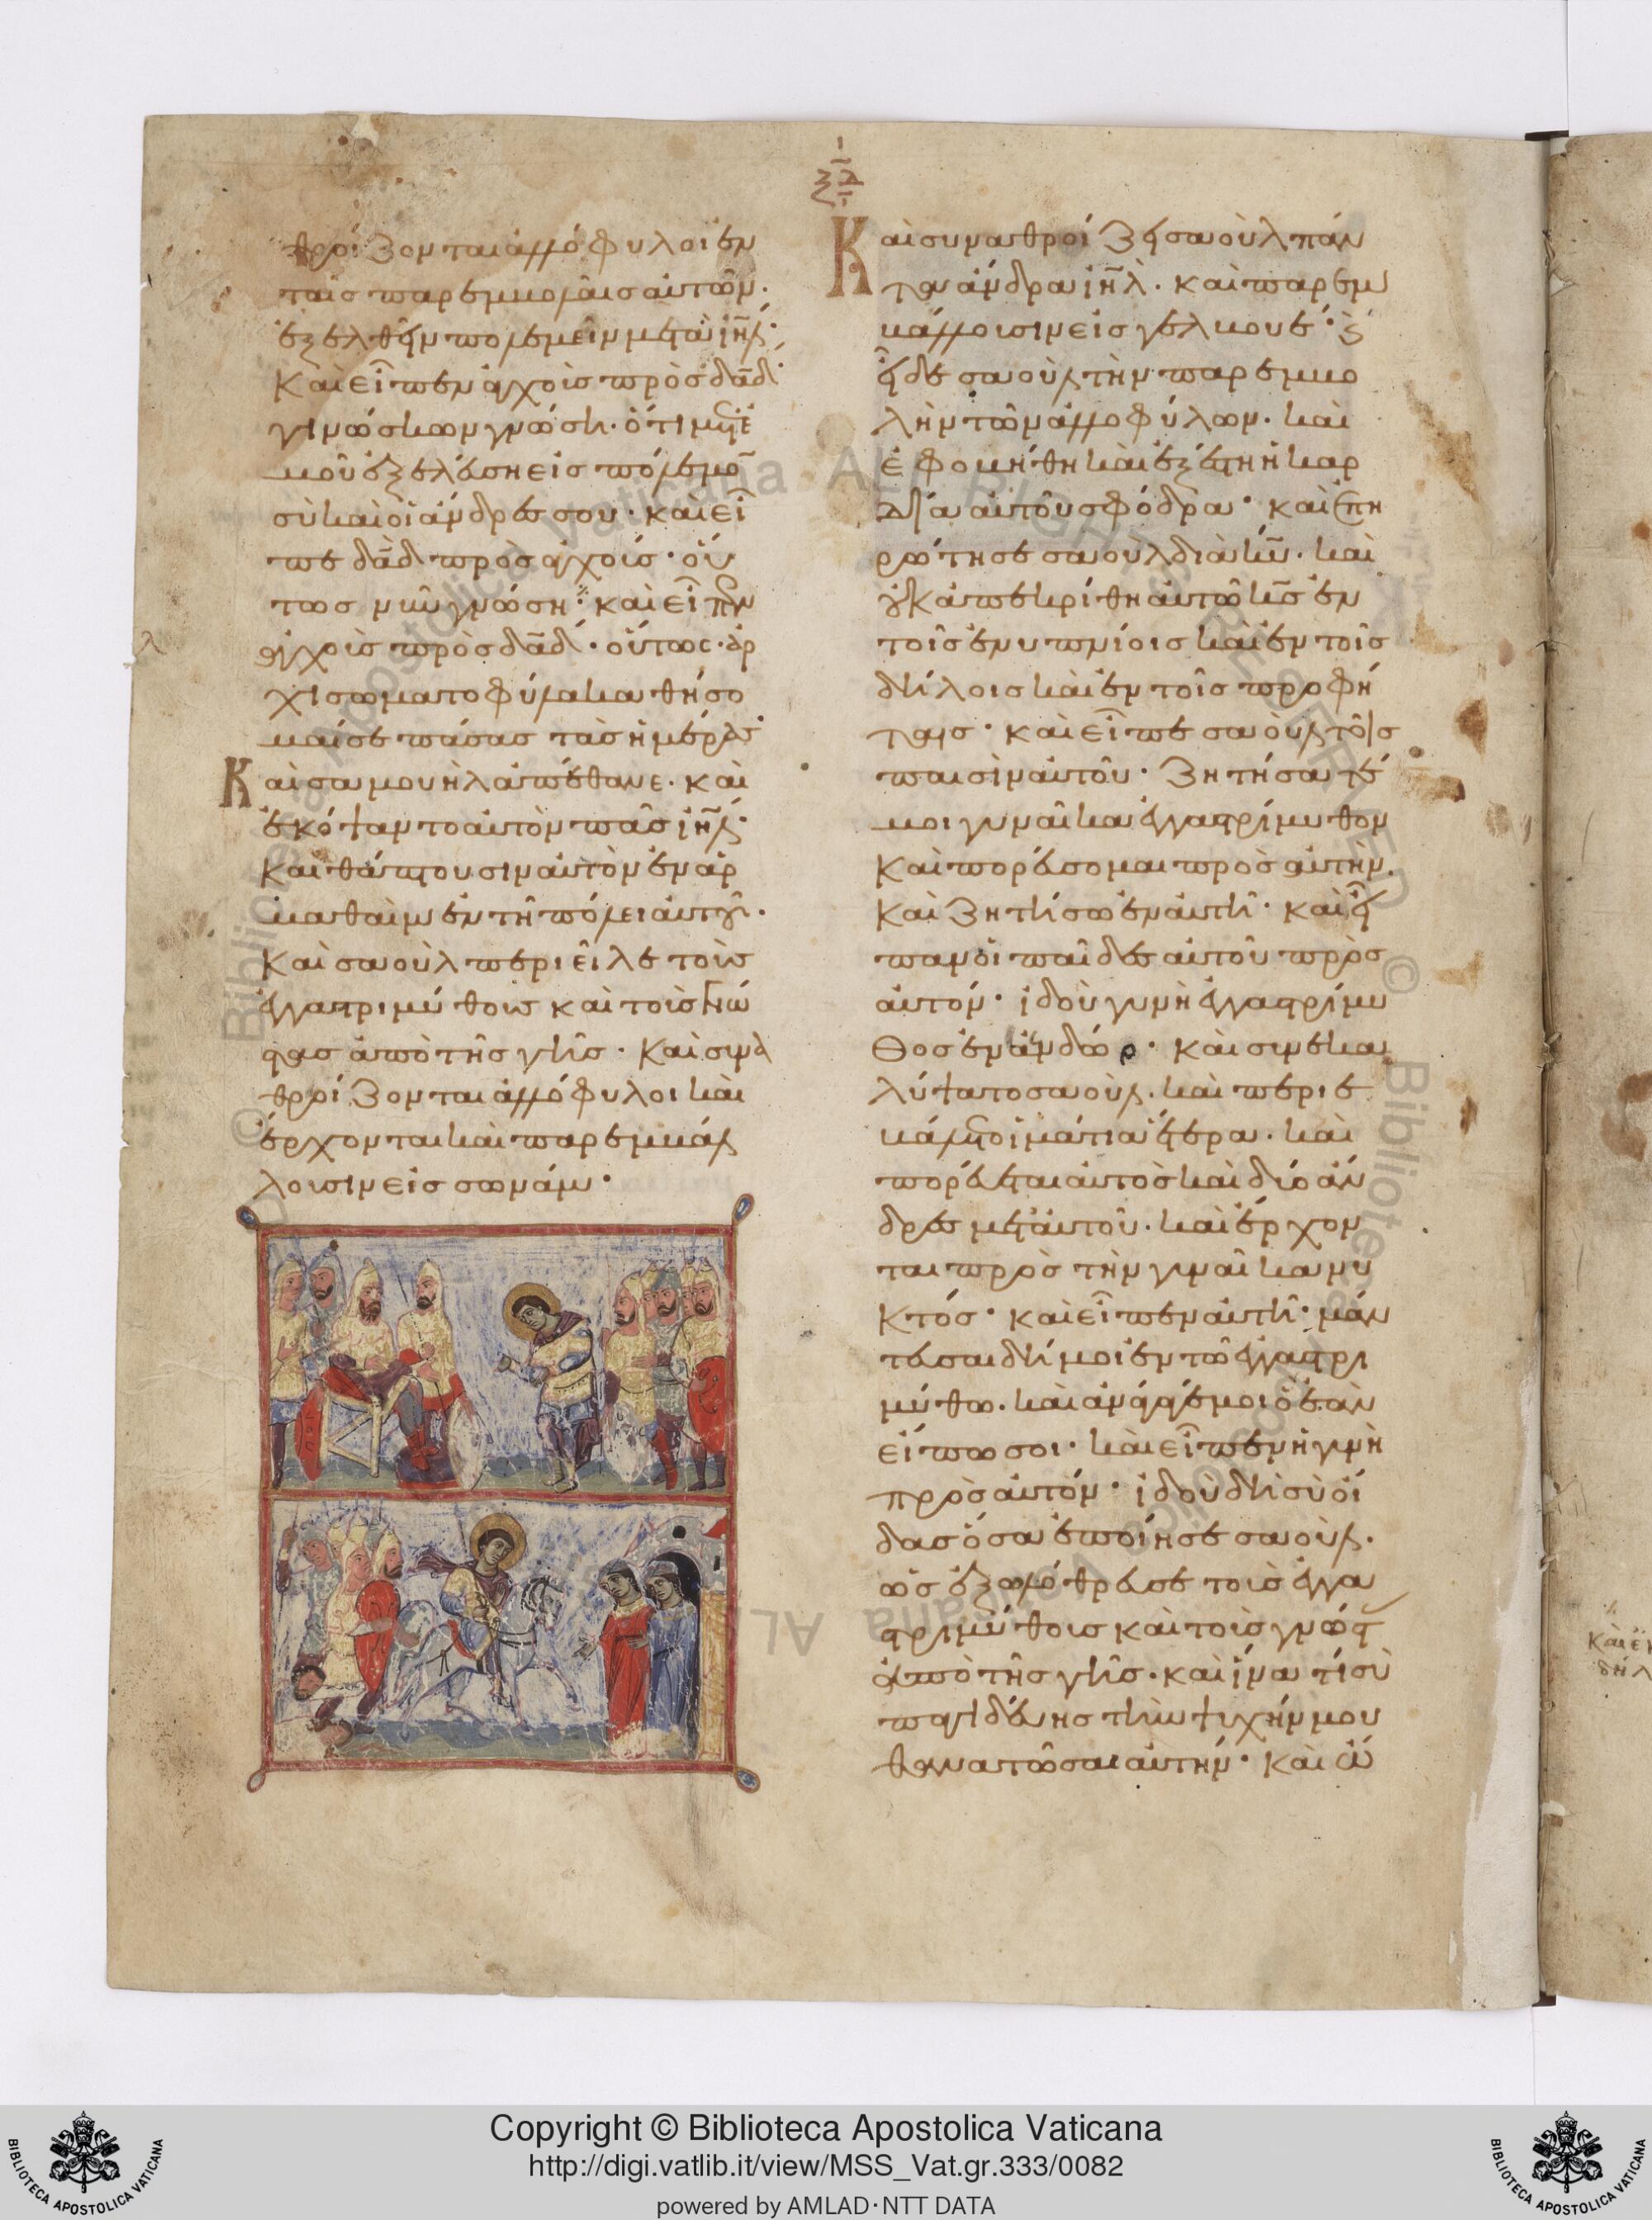 ξ̅δ̅
θροίζονται ἀλλόφυλοι ἐν
ταῖς παρεμβολαῖς αὐτῶν·
ἐξελθεῖν πολεμεῖν μετὰ ιη̅λ·
Καὶ εἶπεν ἀγχοὺς πρὸς δα̅δ·
γινώσκων γνώση· ὅτι μετ ἐ
μοῦ ἐξελεύση εἰς πόλεμον
σὺ καὶ οἱ ἄνδρες σου· καὶ εἶ
πε δα̅δ πρὸς ἀγχούς· οὕ
τως νῦν γνώση· καὶ εἶπεν
ἀγχοὺς πρὸς δα̅δ· οὕτως· ἀρ
χισωματοφύλακα θήσο
μαί σε πάσας τὰς ἡμέρας·
Καὶ σαμουὴλ ἀπέθανε· καὶ
ἐκόψαντο αὐτὸν πᾶς ιη̅λ·
Καὶ θάπτουσιν αὐτὸν ἐν ἀρ
μαθαὶμ ἐν τῇ πόλει αὐτοῦ·
Καὶ σαοὺλ περιεῖλε τοὺς
ἐγγαστριμύθους καὶ τοὺς γνώ
στας ἀπὸ τῆς γῆς· Καὶ συνα
θροίζονται ἀλλόφυλοι καὶ
ἔρχονται καὶ παρεμβάλ
λουσιν εἰς σωνάμ·
Καὶ συναθροίζει σαοὺλ πάν
τα ἄνδρα ιη̅λ· καὶ παρεμ
βάλλουσιν εἰς γελβουέ·
εἶδε σαοὺλ τὴν παρεμβο
λὴν τῶν ἀλλοφύλων· καὶ
ἐφοβήθη καὶ ἐξέστη ἡ καρ
δία αὐτοῦ σφόδρα· καὶ ἐπη
ρώτησε σαοὺλ διὰ κ̅υ̅· καὶ
οὐκ ἀπεκρίθη αὐτῶ κ̅ς̅ ἐν
τοῖς ἐνυπνίοις καὶ ἐν τοῖς
δήλοις καὶ ἐν τοῖς προφή
ταις· καὶ εἶπε σαοὺλ τοῖς
παισὶν αὐτοῦ· ζητήσατέ
μοι γυναῖκα ἐγγαστρίμυθον
Καὶ πορεύσομαι πρὸς αὐτὴν·
Καὶ ζητήσω ἐν αὐτῆ· καὶ εἶ
παν οἱ παῖδες αὐτοῦ πρὸς
αὐτόν· ἰδοὺ γυνὴ ἐγγαστρίμυ
θος ἐν ἀενδώρ· καὶ συνεκα
λύψατο σαούλ· καὶ περιε
βάλετο ἱμάτια ἕτερα· καὶ
πορεύεται αὐτὸς καὶ δύο ἄν
δρες μετ αὐτοῦ· καὶ ἔρχον
ται πρὸς τὴν γυναῖκα νυ
κτός· καὶ εἶπεν αὐτῆ· μάν
τευσαι δή μοι ἐν τῶ ἐγγαστρι
μύθω· καὶ ἀνάγαγέ μοι ὃ ἐὰν
εἴπω σοι· καὶ εἶπεν ἡ γυνὴ
πρὸς αὐτόν· ἰδοὺ δὴ σὺ οἶ
δας ὅσα ἐποίησε σαούλ·
ὡς ἐξωλόθρευσε τοὺς ἐγγα
στριμύθους καὶ τοὺς γνώστ
ἀπὸ τῆς γῆς· καὶ ἵνα τί σὺ
παγιδεύεις τὴν ψυχήν μου
θανατῶσαι αὐτήν· καὶ ὤ
Copyright © Biblioteca Apostolica Vaticana
http://digi.vatlib.it/view/MSS_Vat.gr.333/0082
powered by AMLAD·NTT DATA
BIBLIOTECA APOSTOLICA VATICANA
BIBLIOTECA APOSTOLICA VATICANA